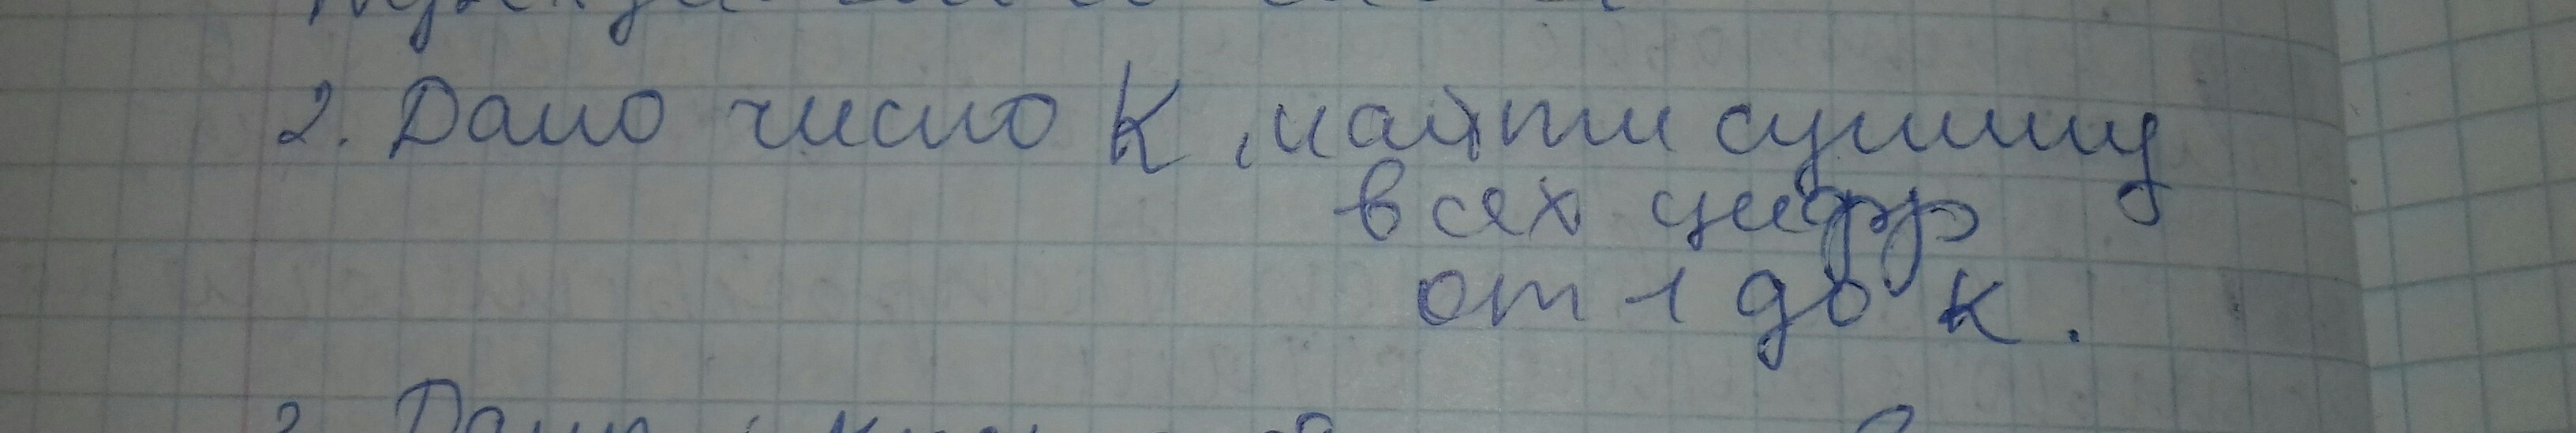 2. Дано число K, найти сумму
всех цифр
от 1 до K.